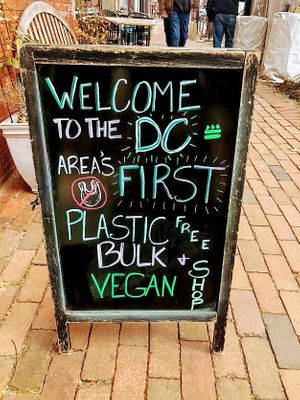 WELCOME
TO THE DC
AREA'S FIRST
PLASTIC FREE
BULK +
VEGAN SHOP